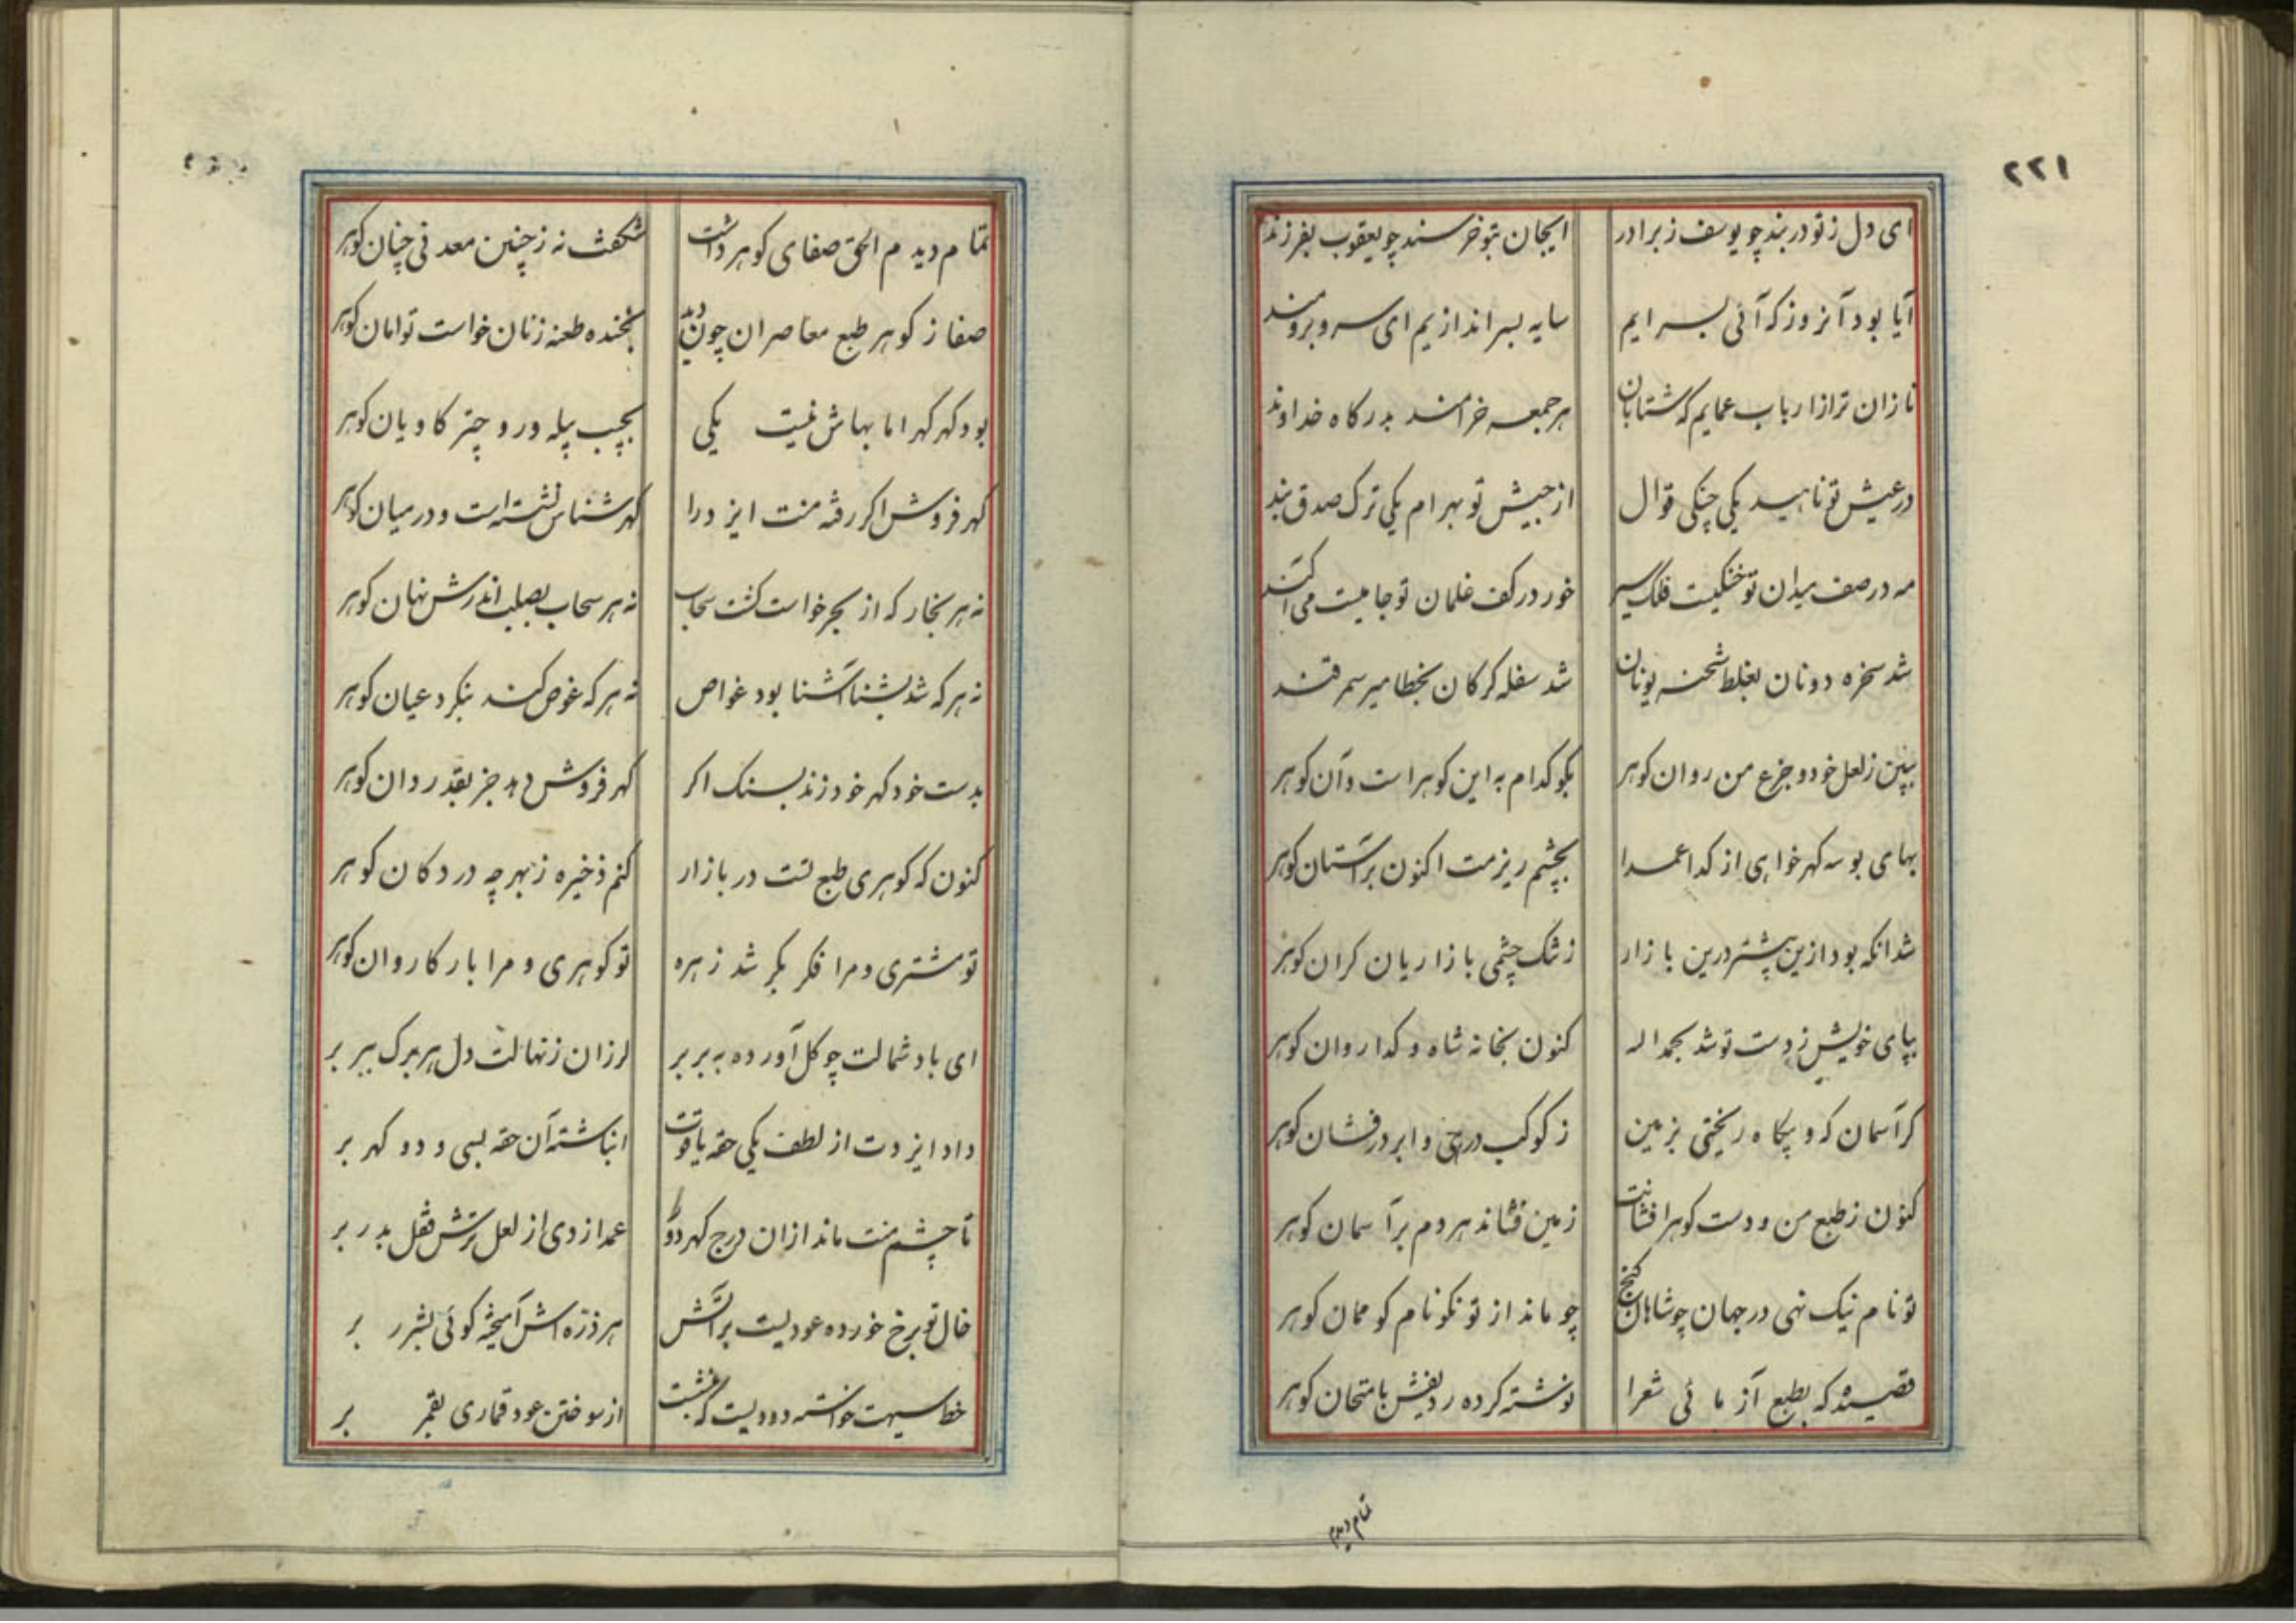 ۲۲۱
ای دل ز تو در بند چو یوسف ز برادر ایجان بتو خرسند چو یعقوب بفرزند
آیا بود آنروز که آئی بسر ایم سایه بسر اندازیم ای سرو برومند
نازان تر از ارباب عمایم که شتابان هر جمعه خرامند بدرکاه خداوند
در عیش تو ناهید یکی چنکی قوال از جیش تو بهرام یکی ترک صدق بند
مه در صف میدان تو خنکیست فلک سیر خور در کف غلمان تو جامیست می آکند
شد سخره دونان بغلط شحنه یونان شد سفله کرکان بخطا میر سمرقند
ببین ز لعل خود و جزع من روان کوهر بکو کدام به این کوهر است و آن کوهر
بهای بوسه کهر خواهی از کدا عمدا بچشم ریزمت اکنون بر آستان کوهر
شد انکه بود ازین پیشتر درین بازار ز تنک چشمی بازاریان کران کوهر
بپای خویش ز دست تو شد بحمد اله کنون بخانه شاه و کدا روان کوهر
کر آسمان که و بیکاه ریختی بزمین ز کوکب درهی و ابر درفشان کوهر
کنون ز طبع من و دست کوهر افشانت زمین فشاند هر دم بر آسمان کوهر
تو نام نیک نهی در جهان چو شاهان کنج چو ماند از تو نکو نام کو ممان کوهر
قصیده که بطبع آزمائی شعرا نوشته کرده ردیفش بامتحان کوهر
تمام دیدم
تمام دیدم الحق صفای کوهر داشت شکفت نه ز چنین معدنی چنان کوهر
صفا ز کوهر طبع معاصران چون دید بخنده طعنه زنان خواست توامان کوهر
بود کهر کهر اما بهاش نیست یکی بجیب پیله ور و چتر کاویان کوهر
کهر فروش اکر رفته منت ایزد را کهر شناس نشسته است و در میان کوهر
نه هر بخار که از بحر خواست کشت سحاب نه هر سحاب بصلب اندرش نهان کوهر
نه هر که شد بشنا آشنا بود غواص نه هر که غوص کند بنکرد عیان کوهر
بدست خود کهر خود زند بسنک اکر کهر فروش دهد جز بقدر دان کوهر
کنون که کوهری طبع تست در بازار کنم ذخیره ز بهر چه در دکان کوهر
تو مشتری و مرا فکر بکر شد زهره تو کوهری و مرا بار کاروان کوهر
ای باد شمالت چو کل آورده به بر بر لرزان ز نهالت دل هر برک ببر بر
داد ایزدت از لطف یکی حقه یاقوت انباشته آن حقه بسی و دو کهر بر
تا چشم منت ماند ازان درج کهر دور عمدا زدی از لعل ترش قفل بدر بر
خال تو برخ خورده عودیست بر آتش هر ذره اش آمیخته کوئی بشرر بر
خط سیهت خواسته دودیست که بنشست از سوختن عود قماری بقمر بر